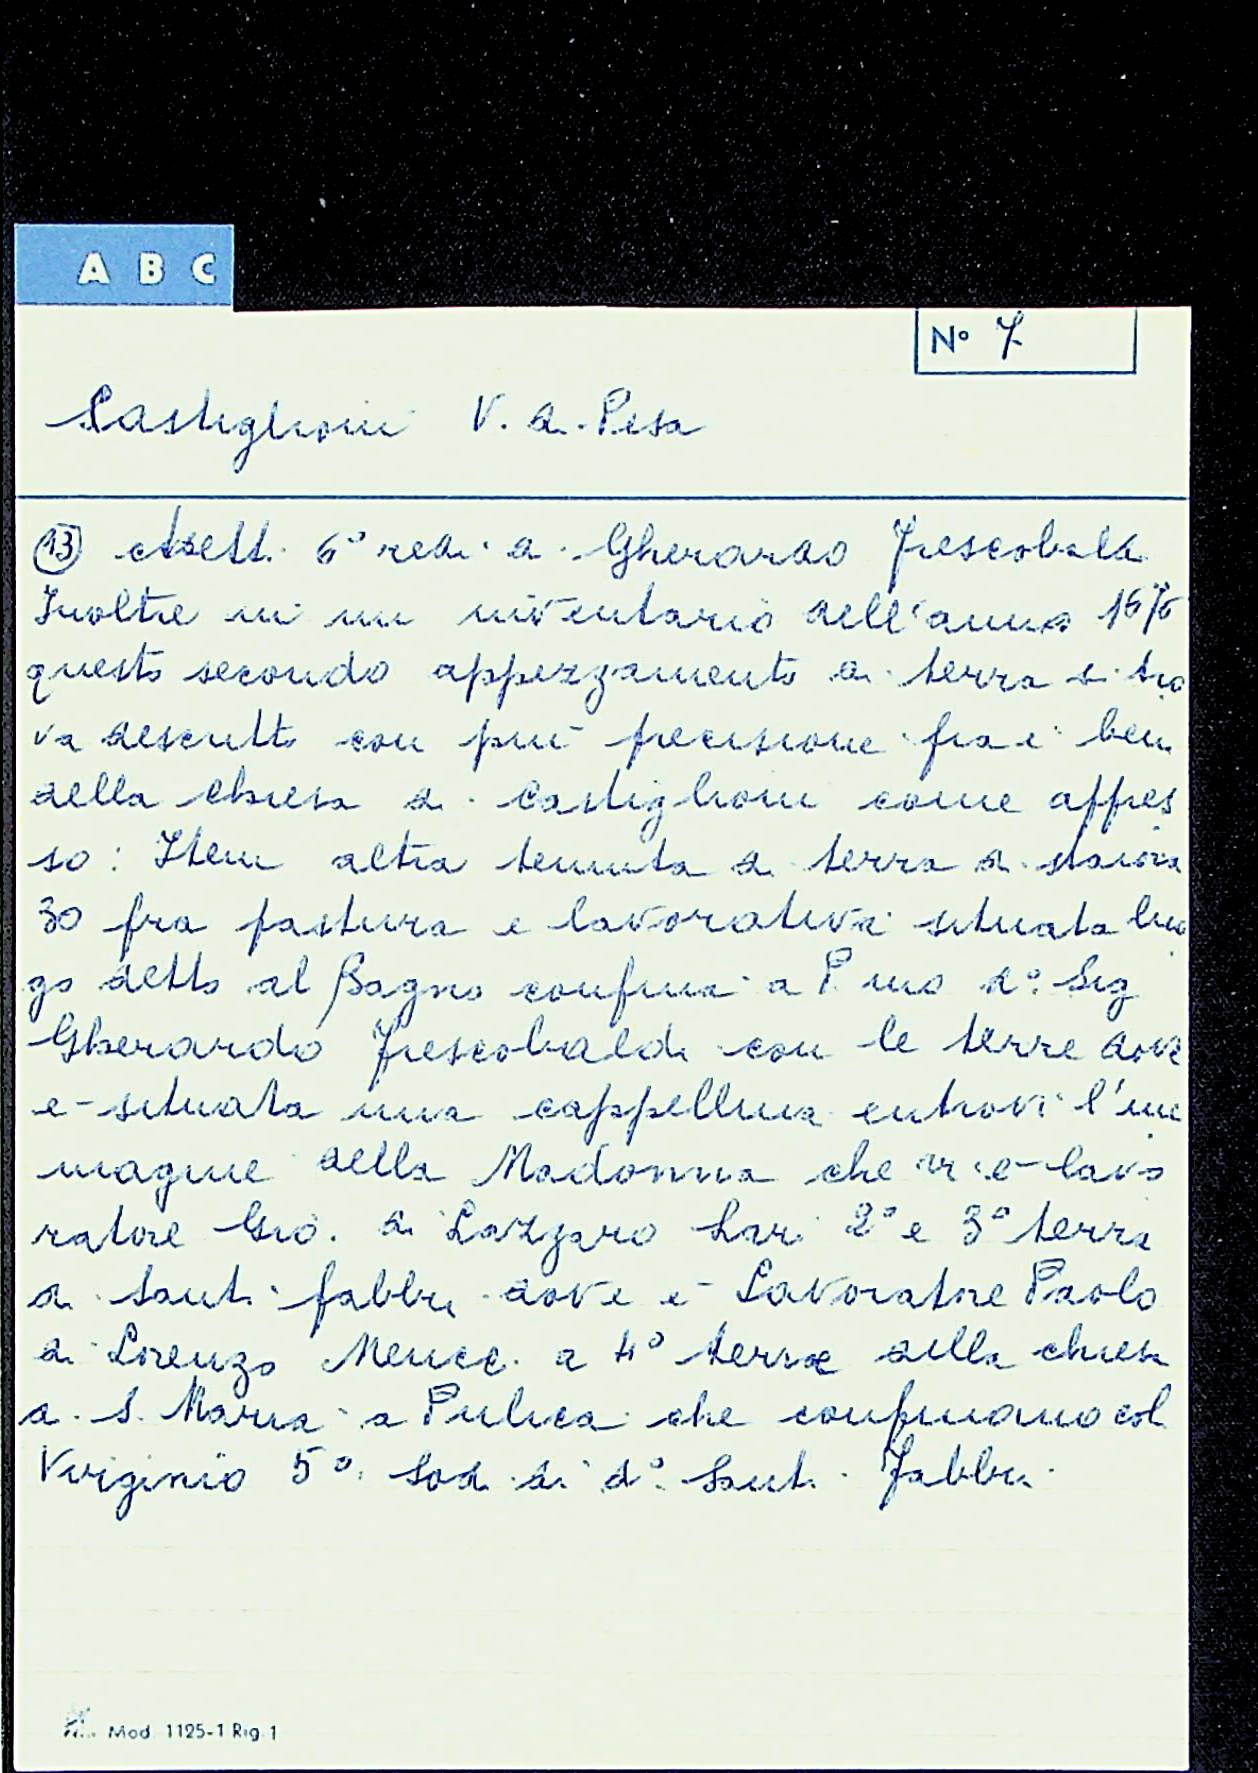 A B C
N° 7
Castiglioni V. di Pesa
(13) detti 6° redi di Gherardo Frescobaldi
Inoltre in un inventario dell'anno 1676
questo secondo appezzamento di terra si tro
va descritto con più precisione fra i beni
della chiesa di Castiglioni come appres
so: Item altra tenuta di terra di staiora
30 fra pastura e lavorativa situata luo
go detto al Bagno confina a P.mo d°. Sig
Gherardo Frescobaldi con le terre dove
è situata una cappellina entrovi l'im
magine della Madonna che vi è lavo
ratore Gio. di Lazzaro Lari 2° e 3° terra
di Santi Fabbri dove è Lavoratore Paolo
di Lorenzo a 4° terre della chiesa
di S. Maria a Pulica che confinano col
Virginio 5°. Sod di d°. Santi Fabbri.
Mod. 1125-1 Rig. 1